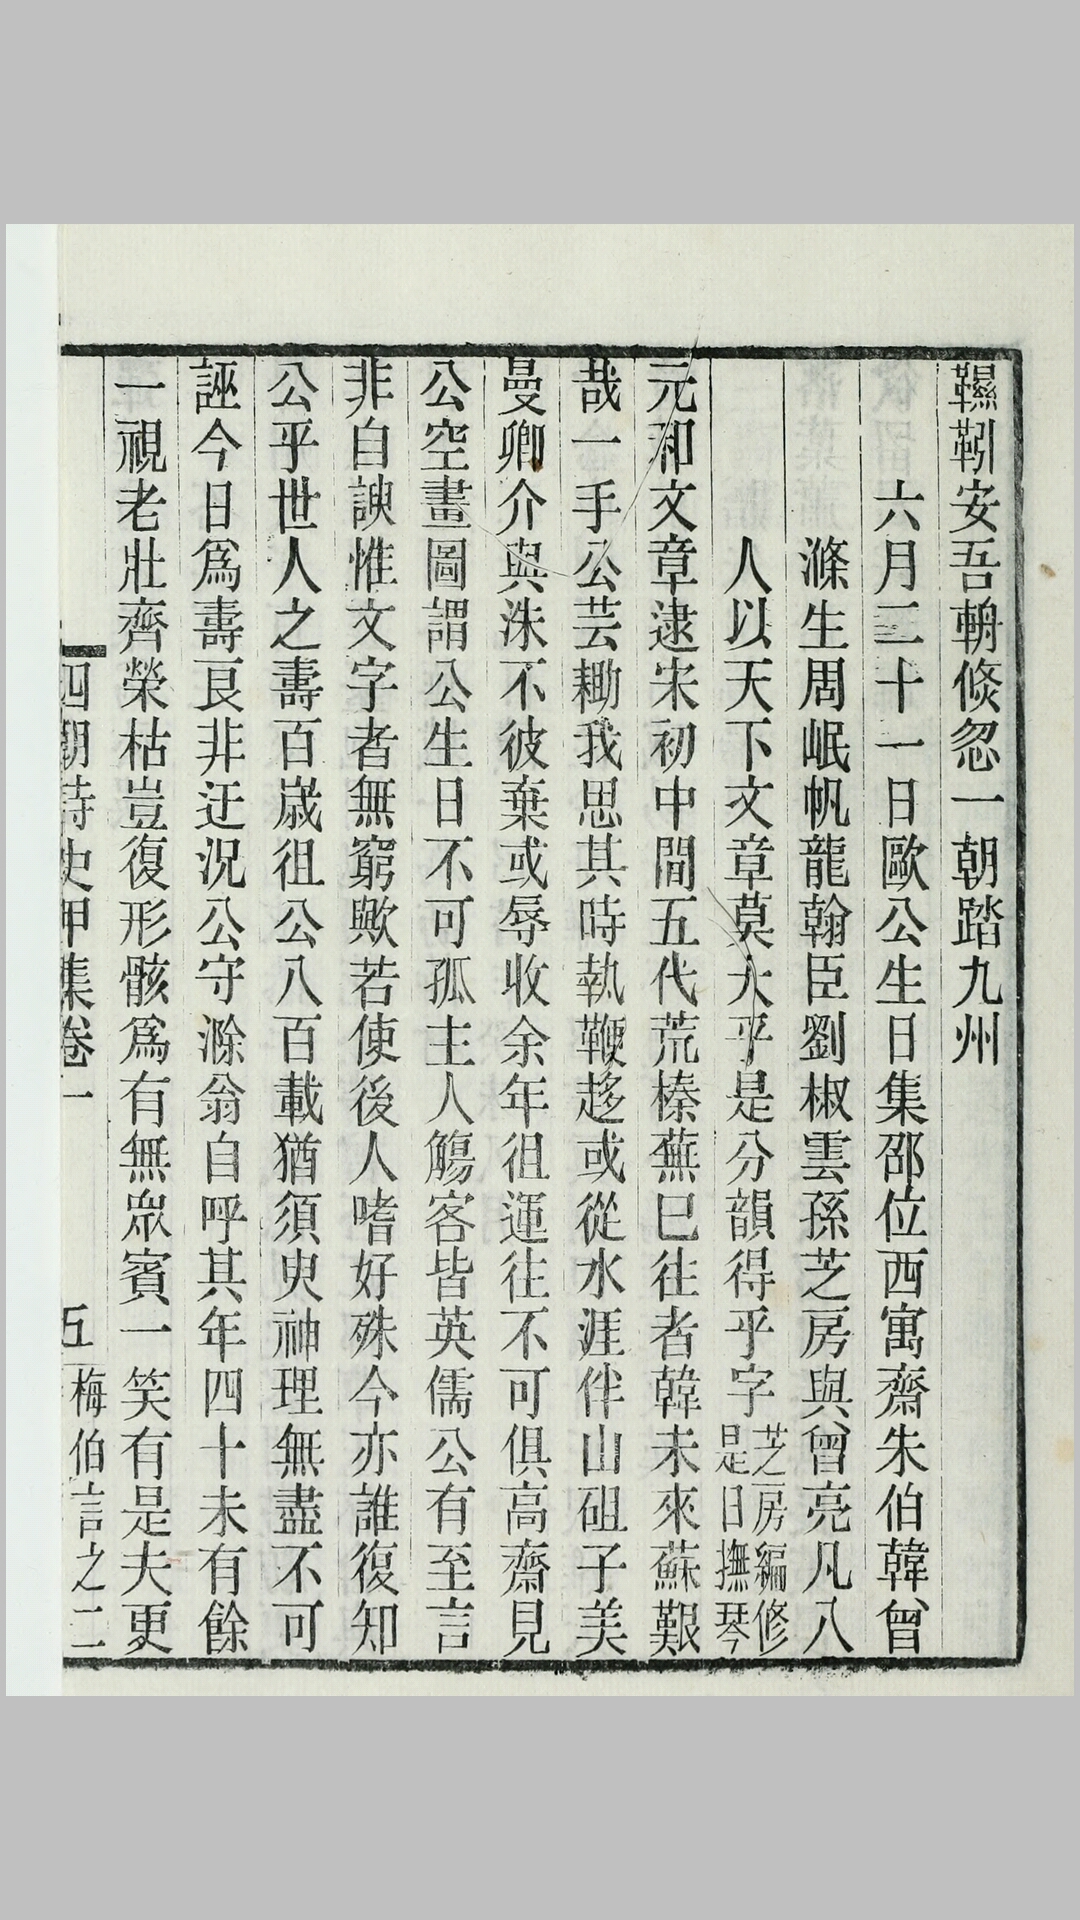 韅靷安吾輈倏忽一朝踏九州
六月二十一日歐公生日集邵位西寓齋朱伯韓曾
滌生周岷帆龍翰臣劉椒雲孫芝房與曾亮凡八
人以天下文章莫大乎是分韻得乎字芝房編修是日撫琴
元和文章逮宋初中間五代荒榛蕪已往者韓未來蘇艱
哉一手公芸耡我思其時執鞭趍或從水涯伴山砠子美
曼卿介與洙不彼棄或辱收余年徂運往不可俱高齋見
公空畫圖謂公生日不可孤主人觴客皆英儒公有至言
非自諛惟文字者無窮歟若使後人嗜好殊今亦誰復知
公乎世人之壽百歲徂公八百載猶須臾神理無盡不可
誣今日爲壽良非迂況公守滁翁自呼其年四十未有餘
一視老壯齊榮枯豈復形骸爲有無眾賓一笑有是夫更
四朝詩史甲集卷一 五 梅伯言之二